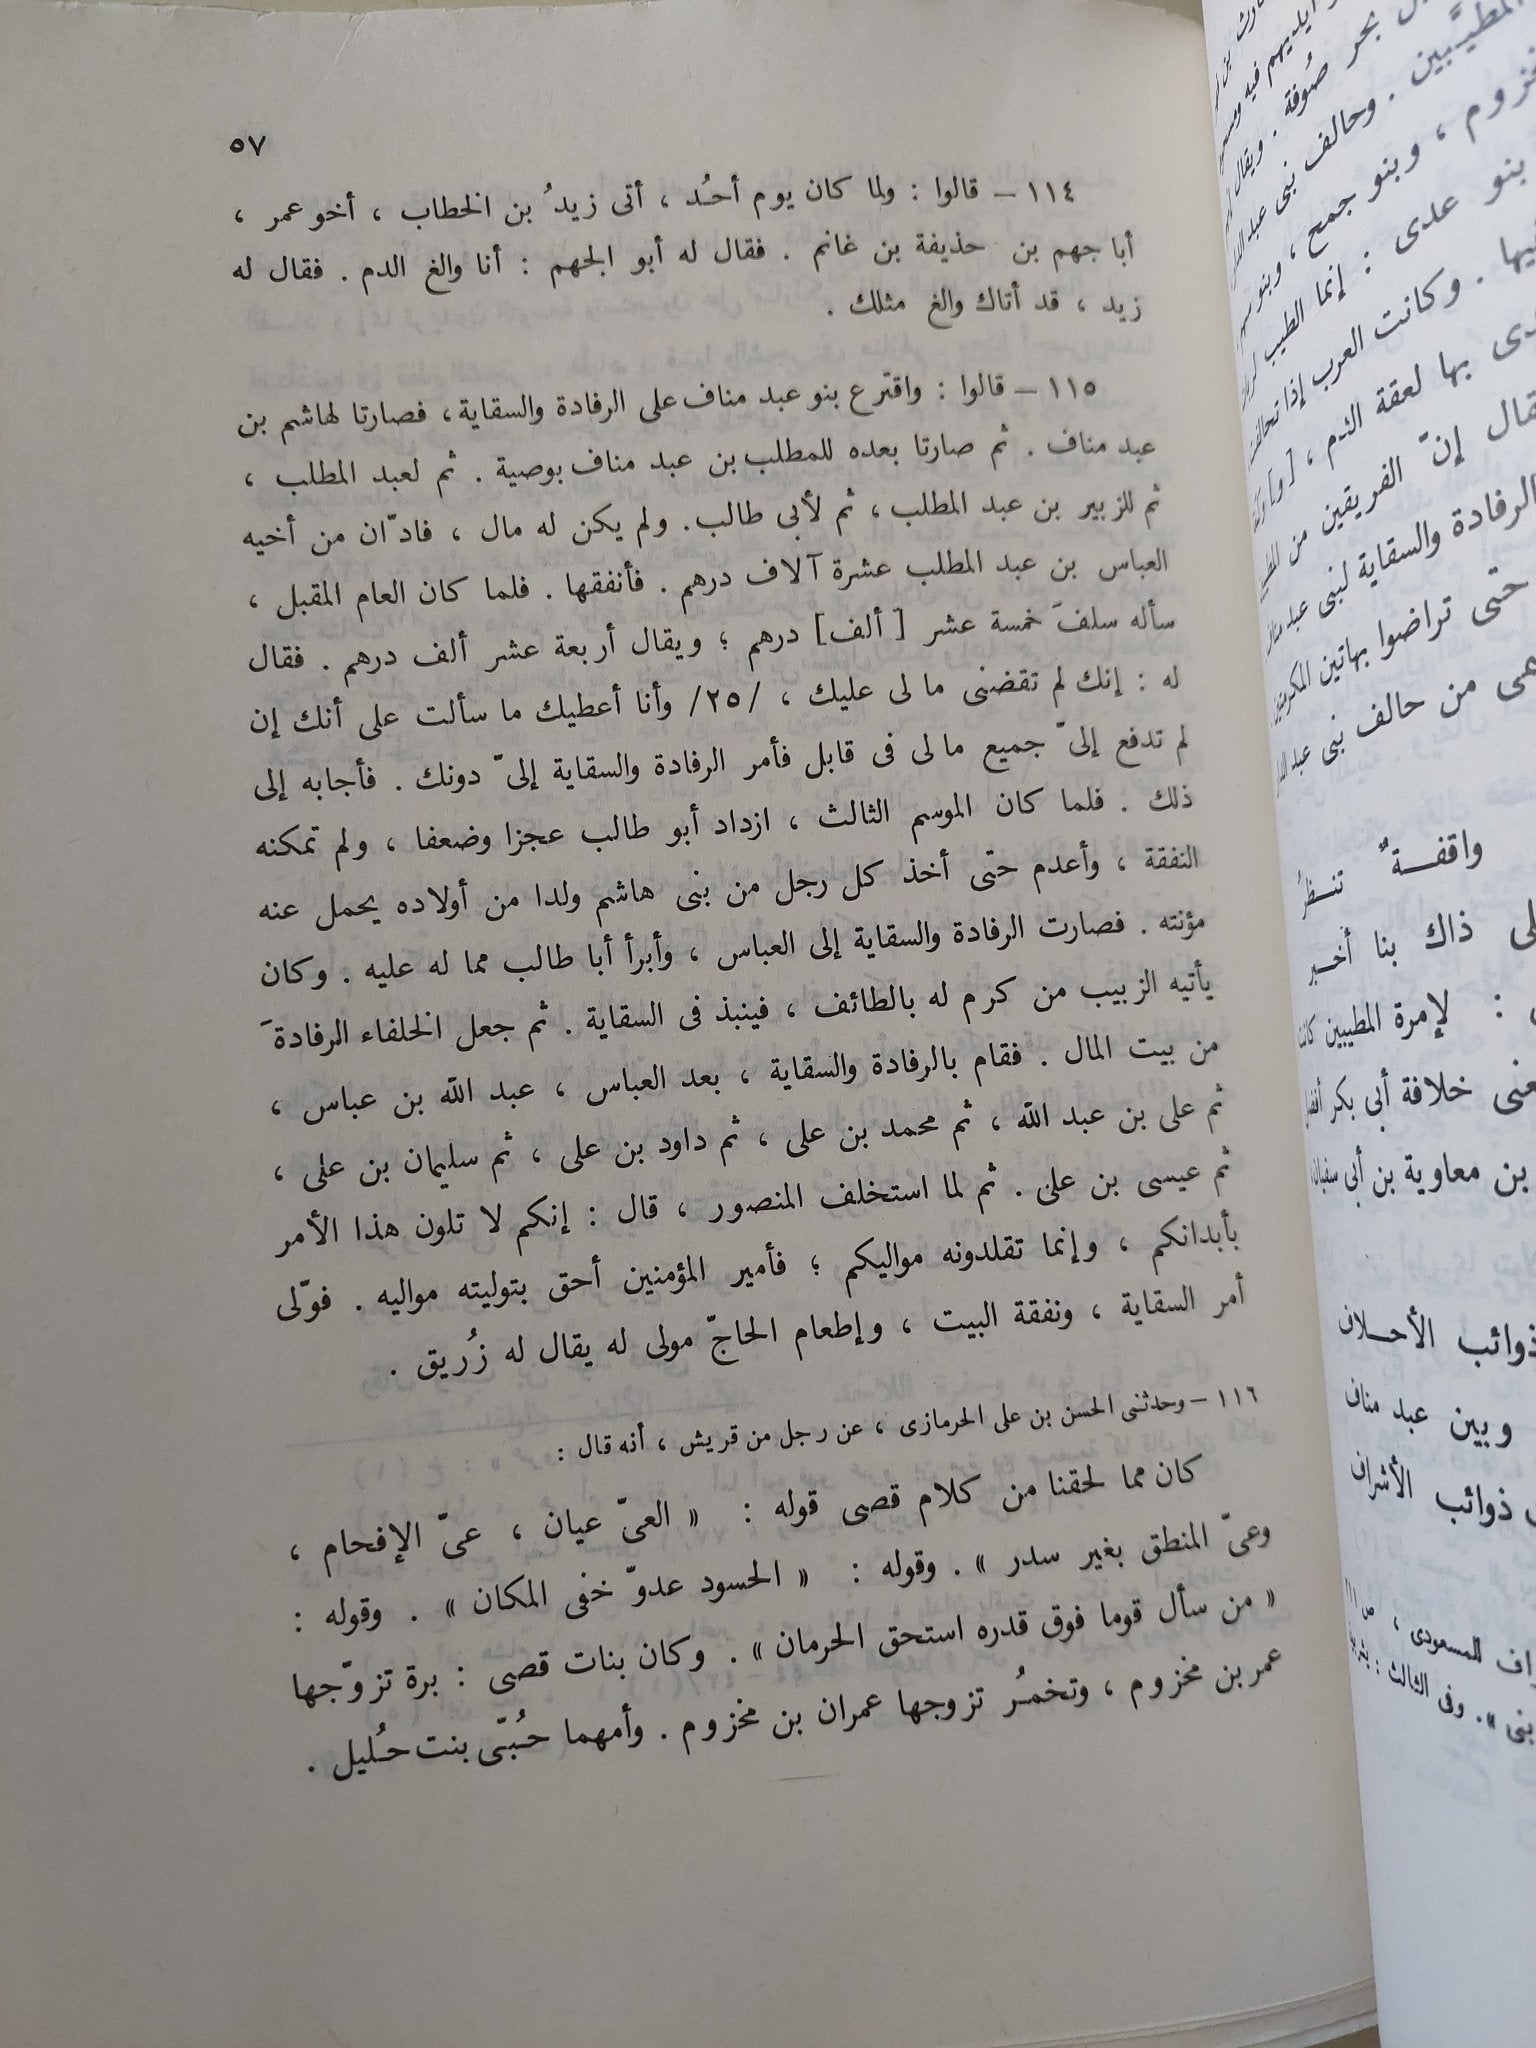 ٥٧
١١٤ – قالوا : ولما كان يوم أحُد ، أتى زيدُ بن الخطاب ، أخو عمر ،
أبا جهم بن حذيفة بن غانم . فقال له أبو الجهم : أنا والغ الدم . فقال له
زيد ، قد أتاك والغ مثلك .
١١٥ – قالوا : واقترع بنو عبد مناف على الرفادة والسقاية ، فصارتا لهاشم بن
عبد مناف . ثم صارتا بعده للمطلب بن عبد مناف بوصية . ثم لعبد المطلب ،
ثم للزبير بن عبد المطلب ، ثم لأبى طالب . ولم يكن له مال ، فادّان من أخيه
العباس بن عبد المطلب عشرة آلاف درهم . فأنفقها . فلما كان العام المقبل ،
سأله سلفَ خمسة عشر [ ألف ] درهم ؛ ويقال أربعة عشر ألف درهم . فقال
له : إنك لم تقضنى ما لى عليك ، /٢٥/ وأنا أعطيك ما سألت على أنك إن
لم تدفع إلىّ جميع ما لى فى قابل فأمر الرفادة والسقاية إلىّ دونك . فأجابه إلى
ذلك . فلما كان الموسم الثالث ، ازداد أبو طالب عجزا وضعفا ، ولم تمكنه
النفقة ، وأعدم حتى أخذ كل رجل من بنى هاشم ولدا من أولاده يحمل عنه
مؤنته . فصارت الرفادة والسقاية إلى العباس ، وأبرأ أبا طالب مما له عليه . وكان
يأتيه الزبيب من كرم له بالطائف ، فينبذ فى السقاية . ثم جعل الخلفاء الرفادةَ
من بيت المال . فقام بالرفادة والسقاية ، بعد العباس ، عبد الله بن عباس ،
ثم على بن عبد الله ، ثم محمد بن على ، ثم داود بن على ، ثم سليمان بن على ،
ثم عيسى بن على . ثم لما استخلف المنصور ، قال : إنكم لا تلون هذا الأمر
بأبدانكم ، وإنما تقلدونه مواليكم ؛ فأمير المؤمنين أحق بتوليته مواليه . فوّلى
أمر السقاية ، ونفقة البيت ، وإطعام الحاجّ مولى له يقال له زُريق .
١١٦ – وحدثنى الحسن بن على الحرمازى ، عن رجل من قريش ، أنه قال :
كان مما لحقنا من كلام قصى قوله : « العىّ عيان ، عىّ الإفحام ،
وعىّ المنطق بغير سدر » . وقوله : « الحسود عدوّ خفى المكان » . وقوله :
« من سأل قوما فوق قدره استحق الحرمان » . وكان بنات قصى : برة تزوّجها
عمر بن مخزوم ، وتخمُر تزوجها عمران بن مخزوم . وأمهما حُبّى بنت حُليل .
بحر صُوفة . ويقال
المطيَّبين . وحالف بنى عبد
، وبنو جمح ، وبنو سهم
بنو عدى : إنما الطيب
. وكانت العرب إذا تحالفت
بها لعقة الدم ،
إنّ الفريقين من
الرفادة والسقاية لبنى عبد مناف
حتى تراضوا بهاتين
من حالف بنى عبد
واقفـــةٌ تنــظرُ
ذاك بنا أخــبر
: لإمرة المطيبين كانت
خلافة أبى بكر
بن معاوية بن أبى سفيان
ذوائب الأحــلاف
وبين عبد مناف
ذوائب الأشراف
للمسعودى ، ص
» . وفى الثالث :